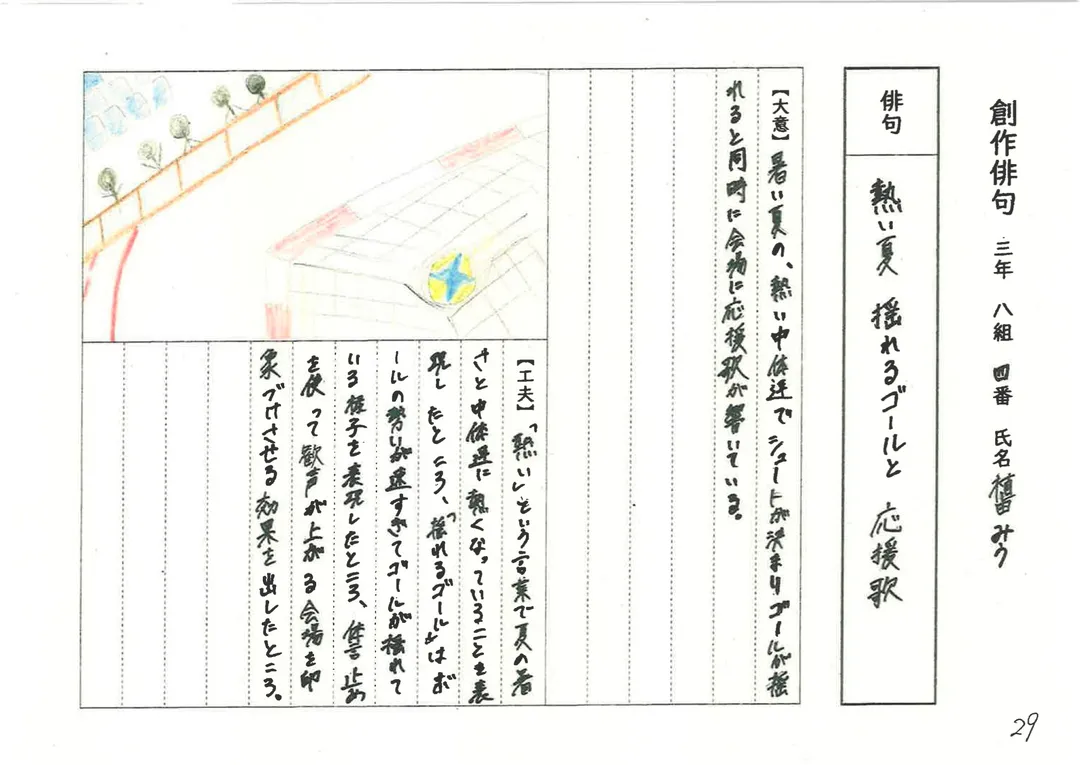 創作俳句 三年 八組 四番 氏名 植田 みう
俳句
熱い夏 揺れるゴールと 応援歌
【大意】暑い夏の、熱い中体連でシュートが決まりゴールが揺
れると同時に会場に応援歌が響いている。
【工夫】「熱い」という言葉で夏の暑
さと中体連に熱くなっていることを表
現したところ、「揺れるゴール」はボ
ールの勢いが速すぎてゴールが揺れて
いる様子を表現したところ、体言止め
を使って歓声が上がる会場を印
象づけさせる効果を出したところ。
29